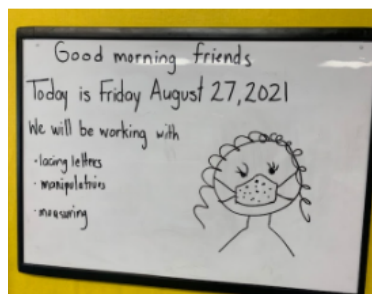 Good morning friends
Today is Friday August 27, 2021
We will be working with
• lacing letters
• manipulatives
• measuring